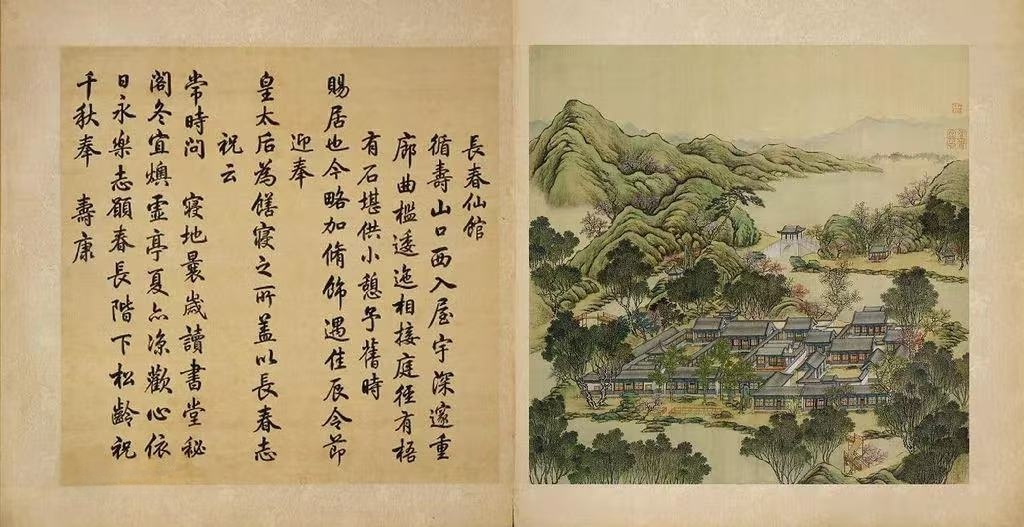 長春仙館
循壽山口西入屋宇深邃重
廊曲檻逶迤相接庭徑有梧
有石堪供小憩予舊時
賜居也今略加修飾遇佳辰令節
迎奉
皇太后為饍寢之所蓋以長春志
祝云
常時問 寢地曩歲讀書堂秘
閣冬宜燠虛亭夏亦涼歡心依
日永樂志願春長階下松齡祝
千秋奉 壽康